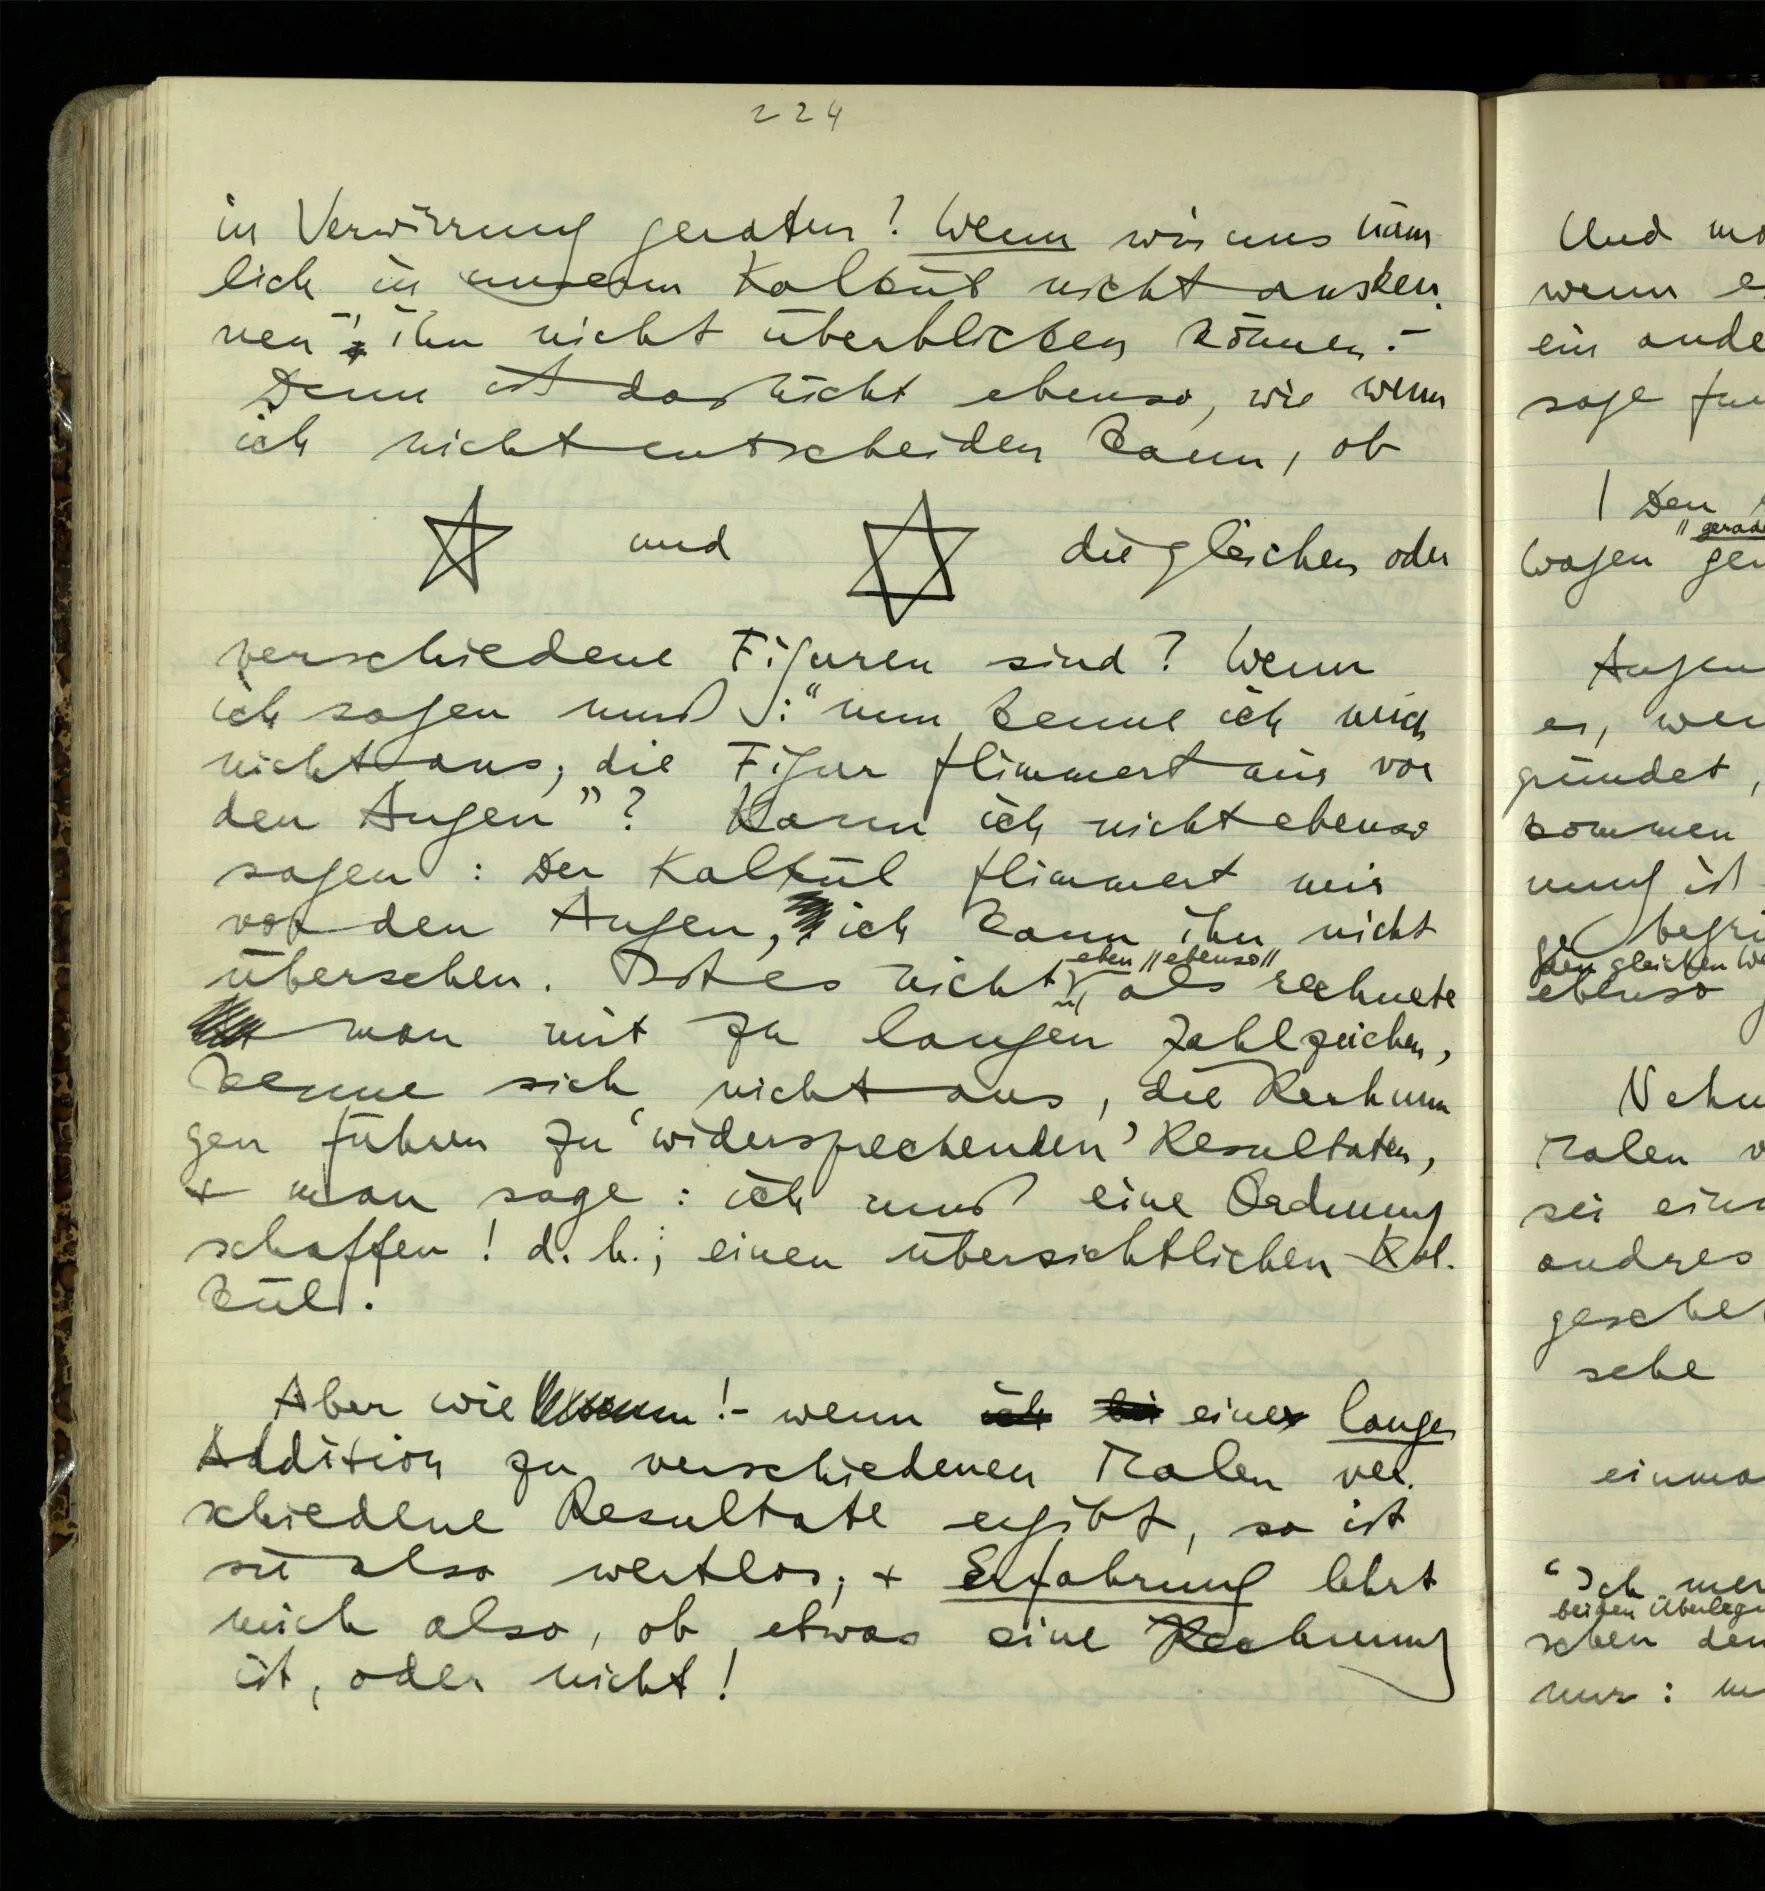 224
in Verwirrung geraten? Wenn wir uns näm-
lich in unserm Kalkül nicht ausken-
nen –, ihn nicht überblicken können. –
Denn ist das nicht ebenso, wie wenn
ich nicht entscheiden kann, ob
und die gleichen oder
verschiedene Figuren sind? Wenn
ich sagen muß: "nun kenne ich mich
nicht aus; die Figur flimmert mir vor
den Augen"? Kann ich nicht ebenso
sagen: Der Kalkül flimmert mir
vor den Augen, ich kann ihn nicht
eben // ebenso //
übersehen. Ist es nicht als rechnete
man mit zu langen Zahlzeichen,
kenne sich nicht aus, die Rechnun
gen führen zu 'widersprechenden' Resultaten,
+ man sage: ich muß eine Ordnung
schaffen! d.h.; einen übersichtlichen Kal-
kül.
Aber wie !– wenn ich bei einer langen
Addition zu verschiedenen Malen ver-
schiedene Resultate ergibt, so ist
sie also wertlos; + Erfahrung lehrt
mich also, ob etwas eine Rechnung
ist, oder nicht!
Und
wenn
ein ande
sage
| Den
// gerade
Wagen
Augen
es, wer
gründet,
kommen
nung ist
begrü
den gleichen
ebenso
Nehm
Malen
sei ein
andres
gescheh
sehe
einma
"Ich mer
beiden Überlegu
schen den
nur: